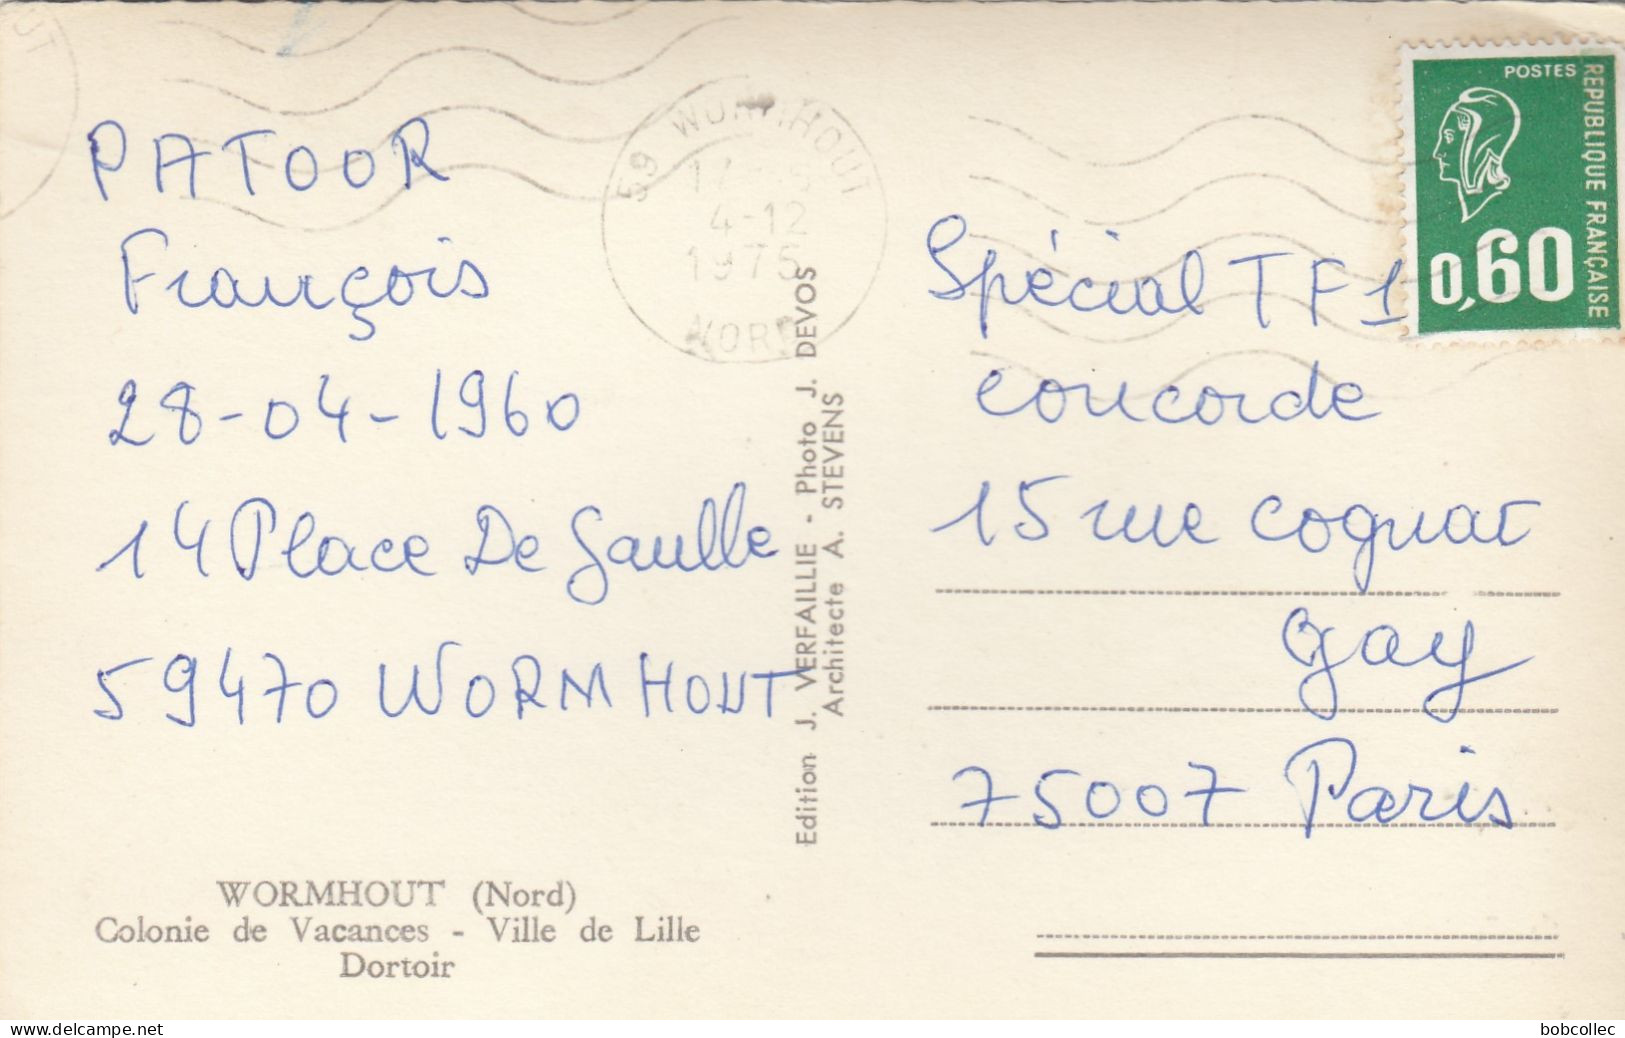 PATOOR
François
28-04-1960
14 Place De Gaulle
59470 WORMHOUT
WORMHOUT (Nord)
Colonie de Vacances - Ville de Lille
Dortoir
59 WORMHOUT
4-12
1975
NORD
Edition J. VERFAILLIE - Photo J. DEVOS
Architecte A. STEVENS
POSTES
REPUBLIQUE FRANÇAISE
0,60
Spécial TF1
concorde
15 rue cognac
gay
75007 Paris
delcampe.net
bobcollec